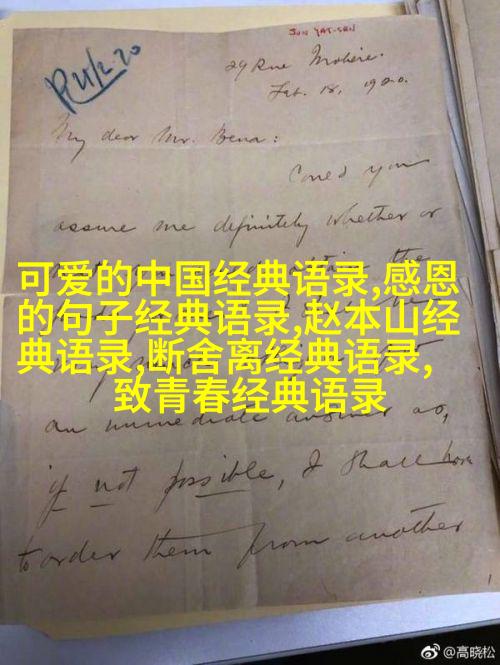 SUN YAT-SEN
R 21/2.20
29 Rue Molière.
Feb. 18, 1920.
My dear Mr. Bena:
Could you
assure me definitely whether or
可爱的中国经典语录,感恩
的句子经典语录,赵本山经
典语录,断舍离经典语录,
致青春经典语录
an immediate answer as,
if not possible, I shall have
to order them from another
@高晓松